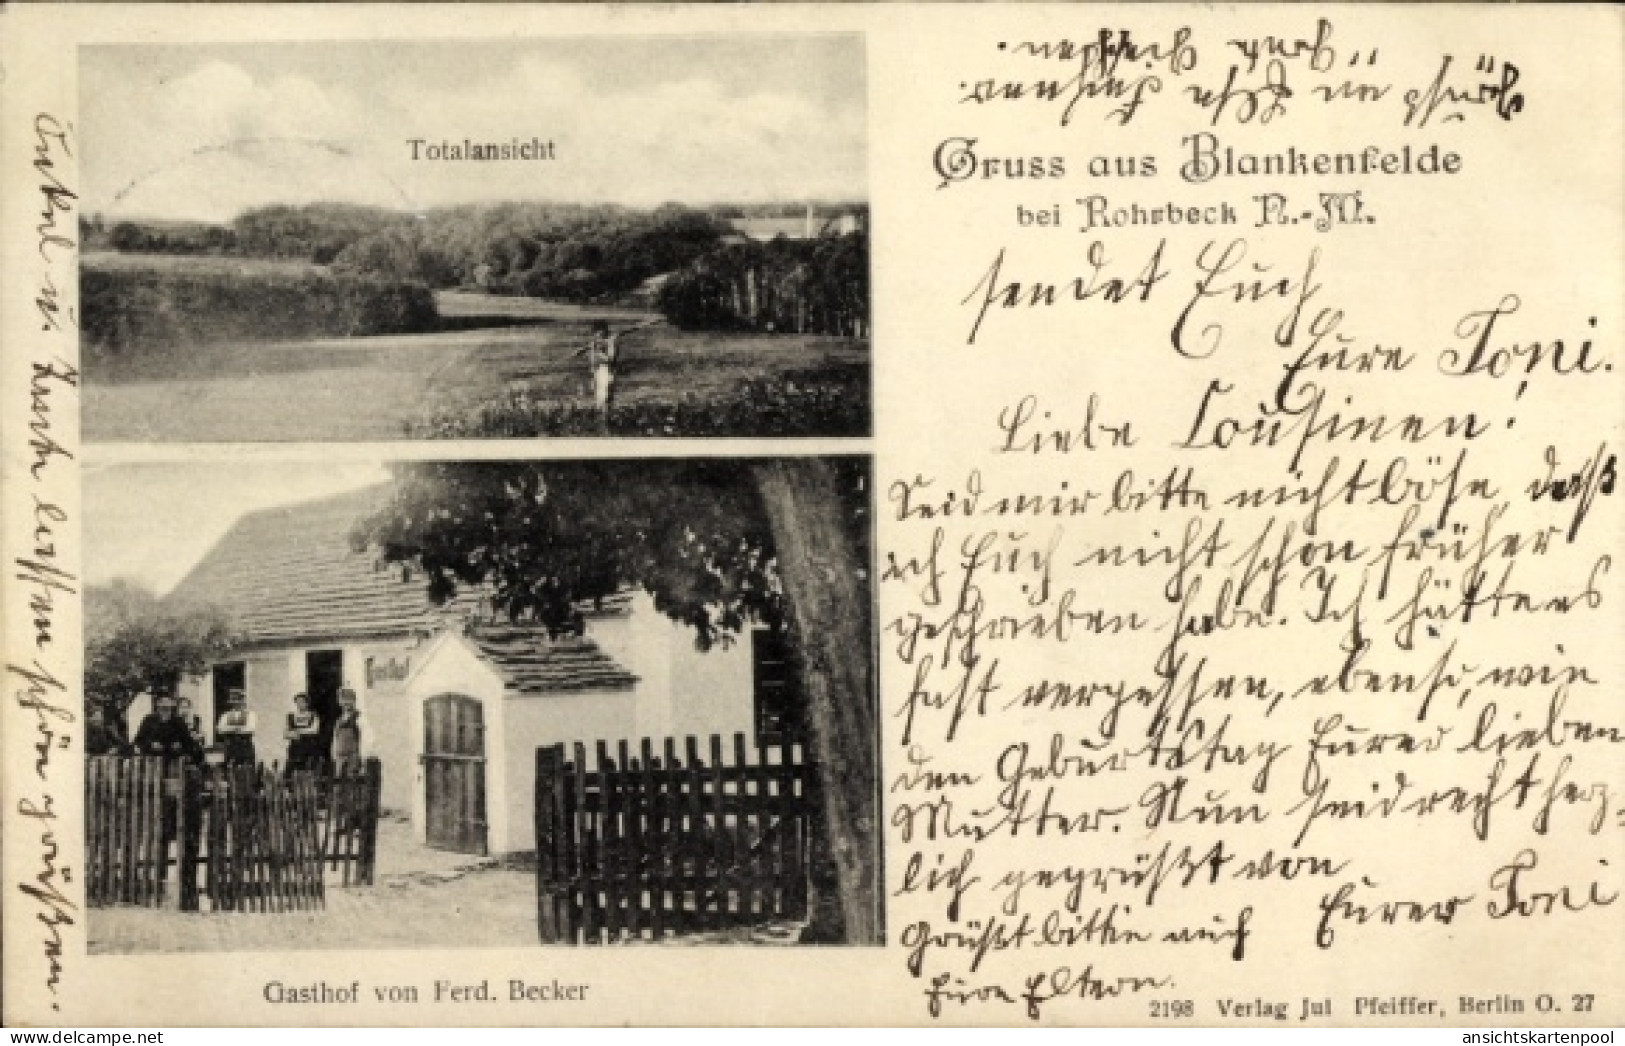 Totalansicht
Gruss aus Blankenfelde
bei Rohrbeck N.-M.
sendet Euch
Eure Toni.
Liebe Cousinen!
Seid mir bitte nicht böse, daß
ich Euch nicht schon früher
geschrieben habe. Ich hätte es
fast vergessen, ebenso, wie
den Geburtstag Eurer lieben
Mutter. Nun seid recht herz-
lich gegrüßt von
Eurer Toni
Grüßt bitte auch
Eure Eltern.
Onkel u. Tante lassen schön grüßen.
Gasthof
Gasthof von Ferd. Becker
2198 Verlag Jul Pfeiffer, Berlin O. 27
delcampe.net
ansichtskartenpool